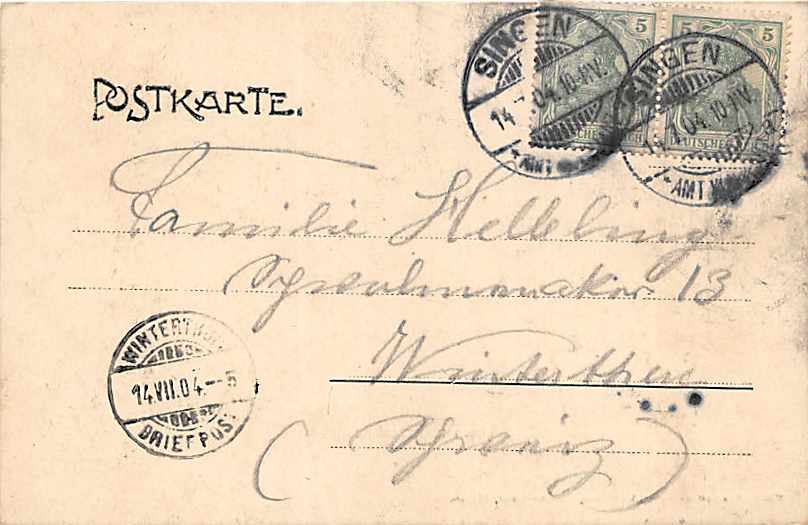 POSTKARTE.
5 5
SINGEN
14.7.04.10-11V.
AMT
SINGEN
14.7.04.10-11V.
AMT
Familie Helbling
13
Winterthur
(Schweiz)
WINTERTHUR
14.VII.04.-5
BRIEFPOST